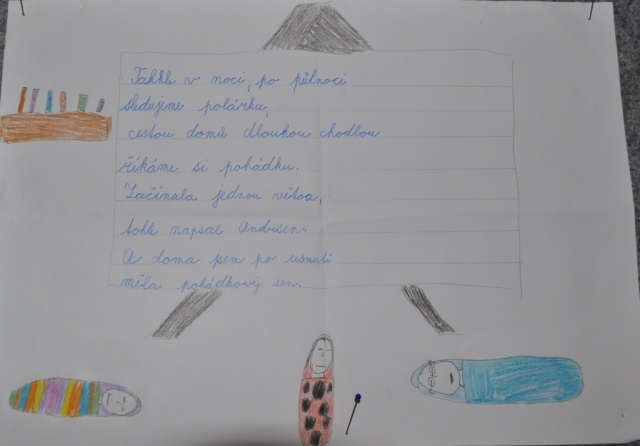 Takhle v noci, po půlnoci
sledujeme polárku,
cestou domů dlouhou chodbou
říkáme si pohádku.
Začínala jednou větou,
tohle napsal Andrsen.
A doma jsem po usnutí
měla pohádkový sen.